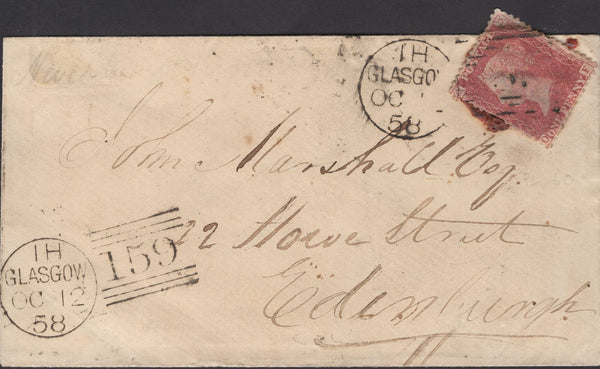 1H
GLASGOW
OC 1
58
John Marshall Esq.
22 Howe Street
Edinburgh
1H
GLASGOW
OC 12
58
159